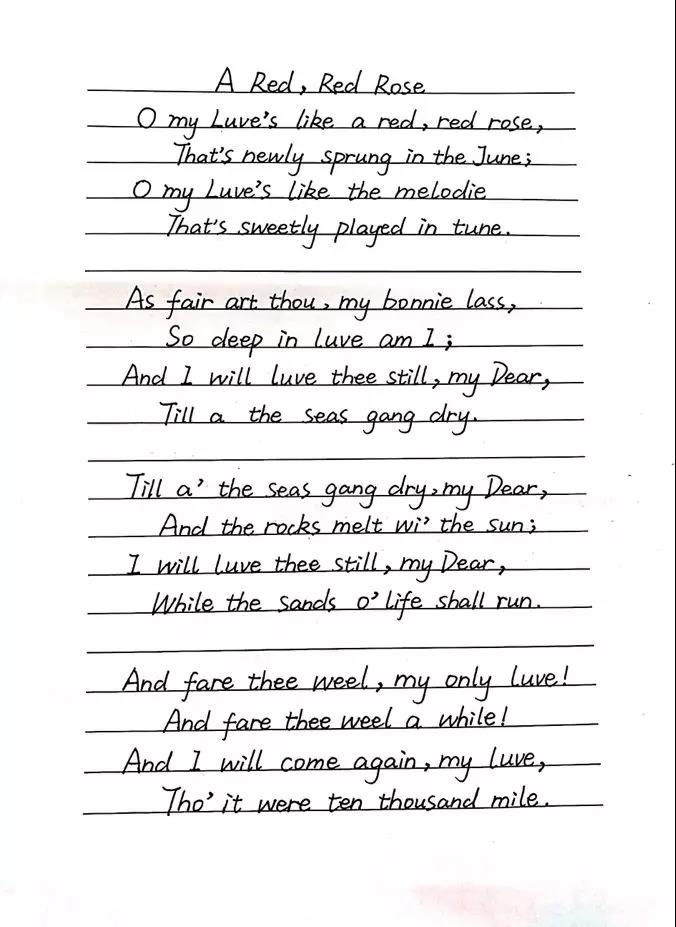 A Red, Red Rose
O my Luve's like a red, red rose,
That's newly sprung in the June;
O my Luve's like the melodie
That's sweetly played in tune.
As fair art thou, my bonnie lass,
So deep in luve am I;
And I will luve thee still, my Dear,
Till a the seas gang dry.
Till a' the seas gang dry, my Dear,
And the rocks melt wi' the sun;
I will luve thee still, my Dear,
While the sands o' life shall run.
And fare thee weel, my only luve!
And fare thee weel a while!
And I will come again, my luve,
Tho' it were ten thousand mile.